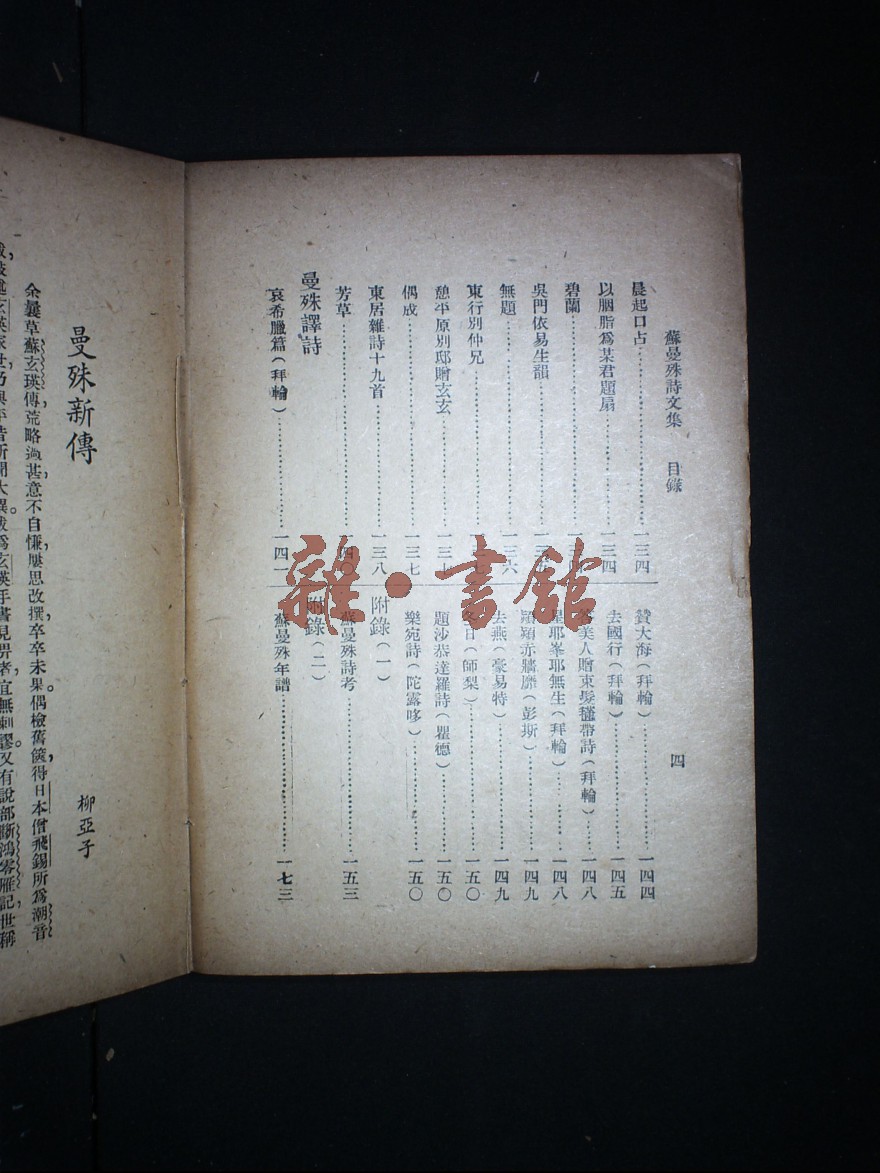 蘇曼殊詩文集 目錄 四
晨起口占 一三四
以胭脂爲某君題扇 一三四
碧蘭
吳門依易生韻
無題 一三六
東行別仲兄
憩平原別邸贈玄玄 一三七
偶成 一三七
東居雜詩十九首 一三八
芳草 一四〇
曼殊譯詩
哀希臘篇(拜輪) 一四一
贊大海(拜輪) 一四四
去國行(拜輪) 一四五
答美人贈束髮𣰽帶詩(拜輪) 一四八
星耶峯耶無生(拜輪) 一四八
熲熲赤牆靡(彭斯) 一四九
去燕(豪易特) 一四九
冬日(師梨) 一五〇
題沙恭達羅詩(瞿德) 一五〇
樂宛詩(陀露哆) 一五〇
附錄(一)
蘇曼殊詩考 一五三
附錄(二)
蘇曼殊年譜 一七三
雜·書館
曼殊新傳
柳亞子
余曩草蘇玄瑛傳荒略過甚,意不自慊,屢思改撰,卒卒未果。偶檢舊篋,得日本僧飛錫所爲潮音
玄瑛家世,乃與平昔所聞大異。或爲玄瑛手書見畀者,宜無剌謬。又有說部斷鴻零雁記,世稱